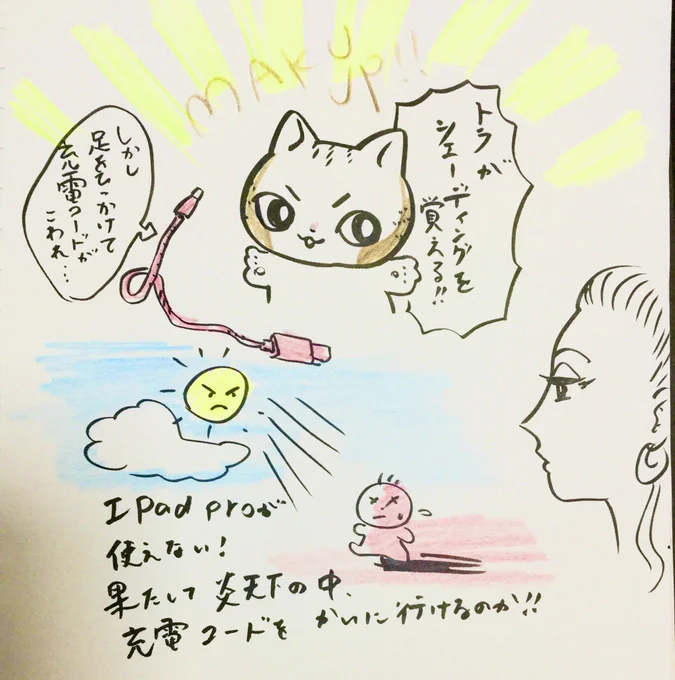 MAKUP!!
トラが
シェーディングを
覚える!!
しかし
足をひっかけて
充電コードが
こわれ…
IPad proが
使えない!
果たして 炎天下の中、
充電コードを かいに行けるのか!!